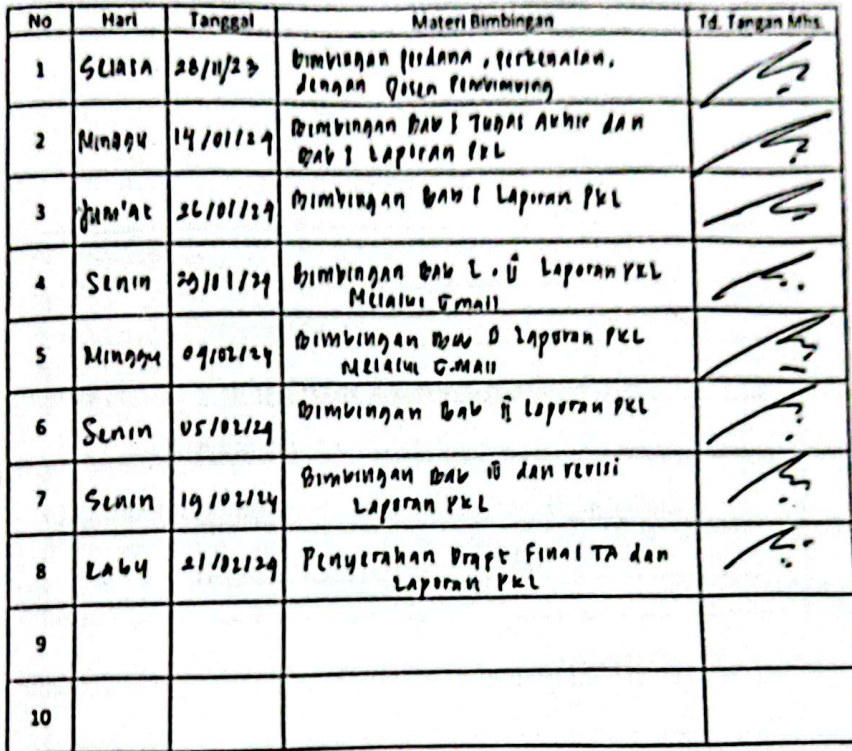 No Hari Tanggal Materi Bimbingan Td. Tangan Mhs.
1 SElaSA 28/11/23 Bimbingan perdana, perkenalan,
dengan Dosen Pembimbing
2 Minggu 14/01/24 Bimbingan Bab I Tugas Akhir dan
Bab I Laporan PKL
3 Jum'at 26/01/24 Bimbingan Bab I Laporan PKL
4 Senin 29/01/24 Bimbingan Bab I . II Laporan PKL
Melalui Gmail
5 Minggu 04/02/24 Bimbingan Bab II Laporan PKL
Melalui G.Mail
6 Senin 05/02/24 Bimbingan Bab II Laporan PKL
7 Senin 19/02/24 Bimbingan Bab III dan revisi
Laporan PKL
8 Rabu 21/02/24 Penyerahan Draft Final TA dan
Laporan PKL
9
10